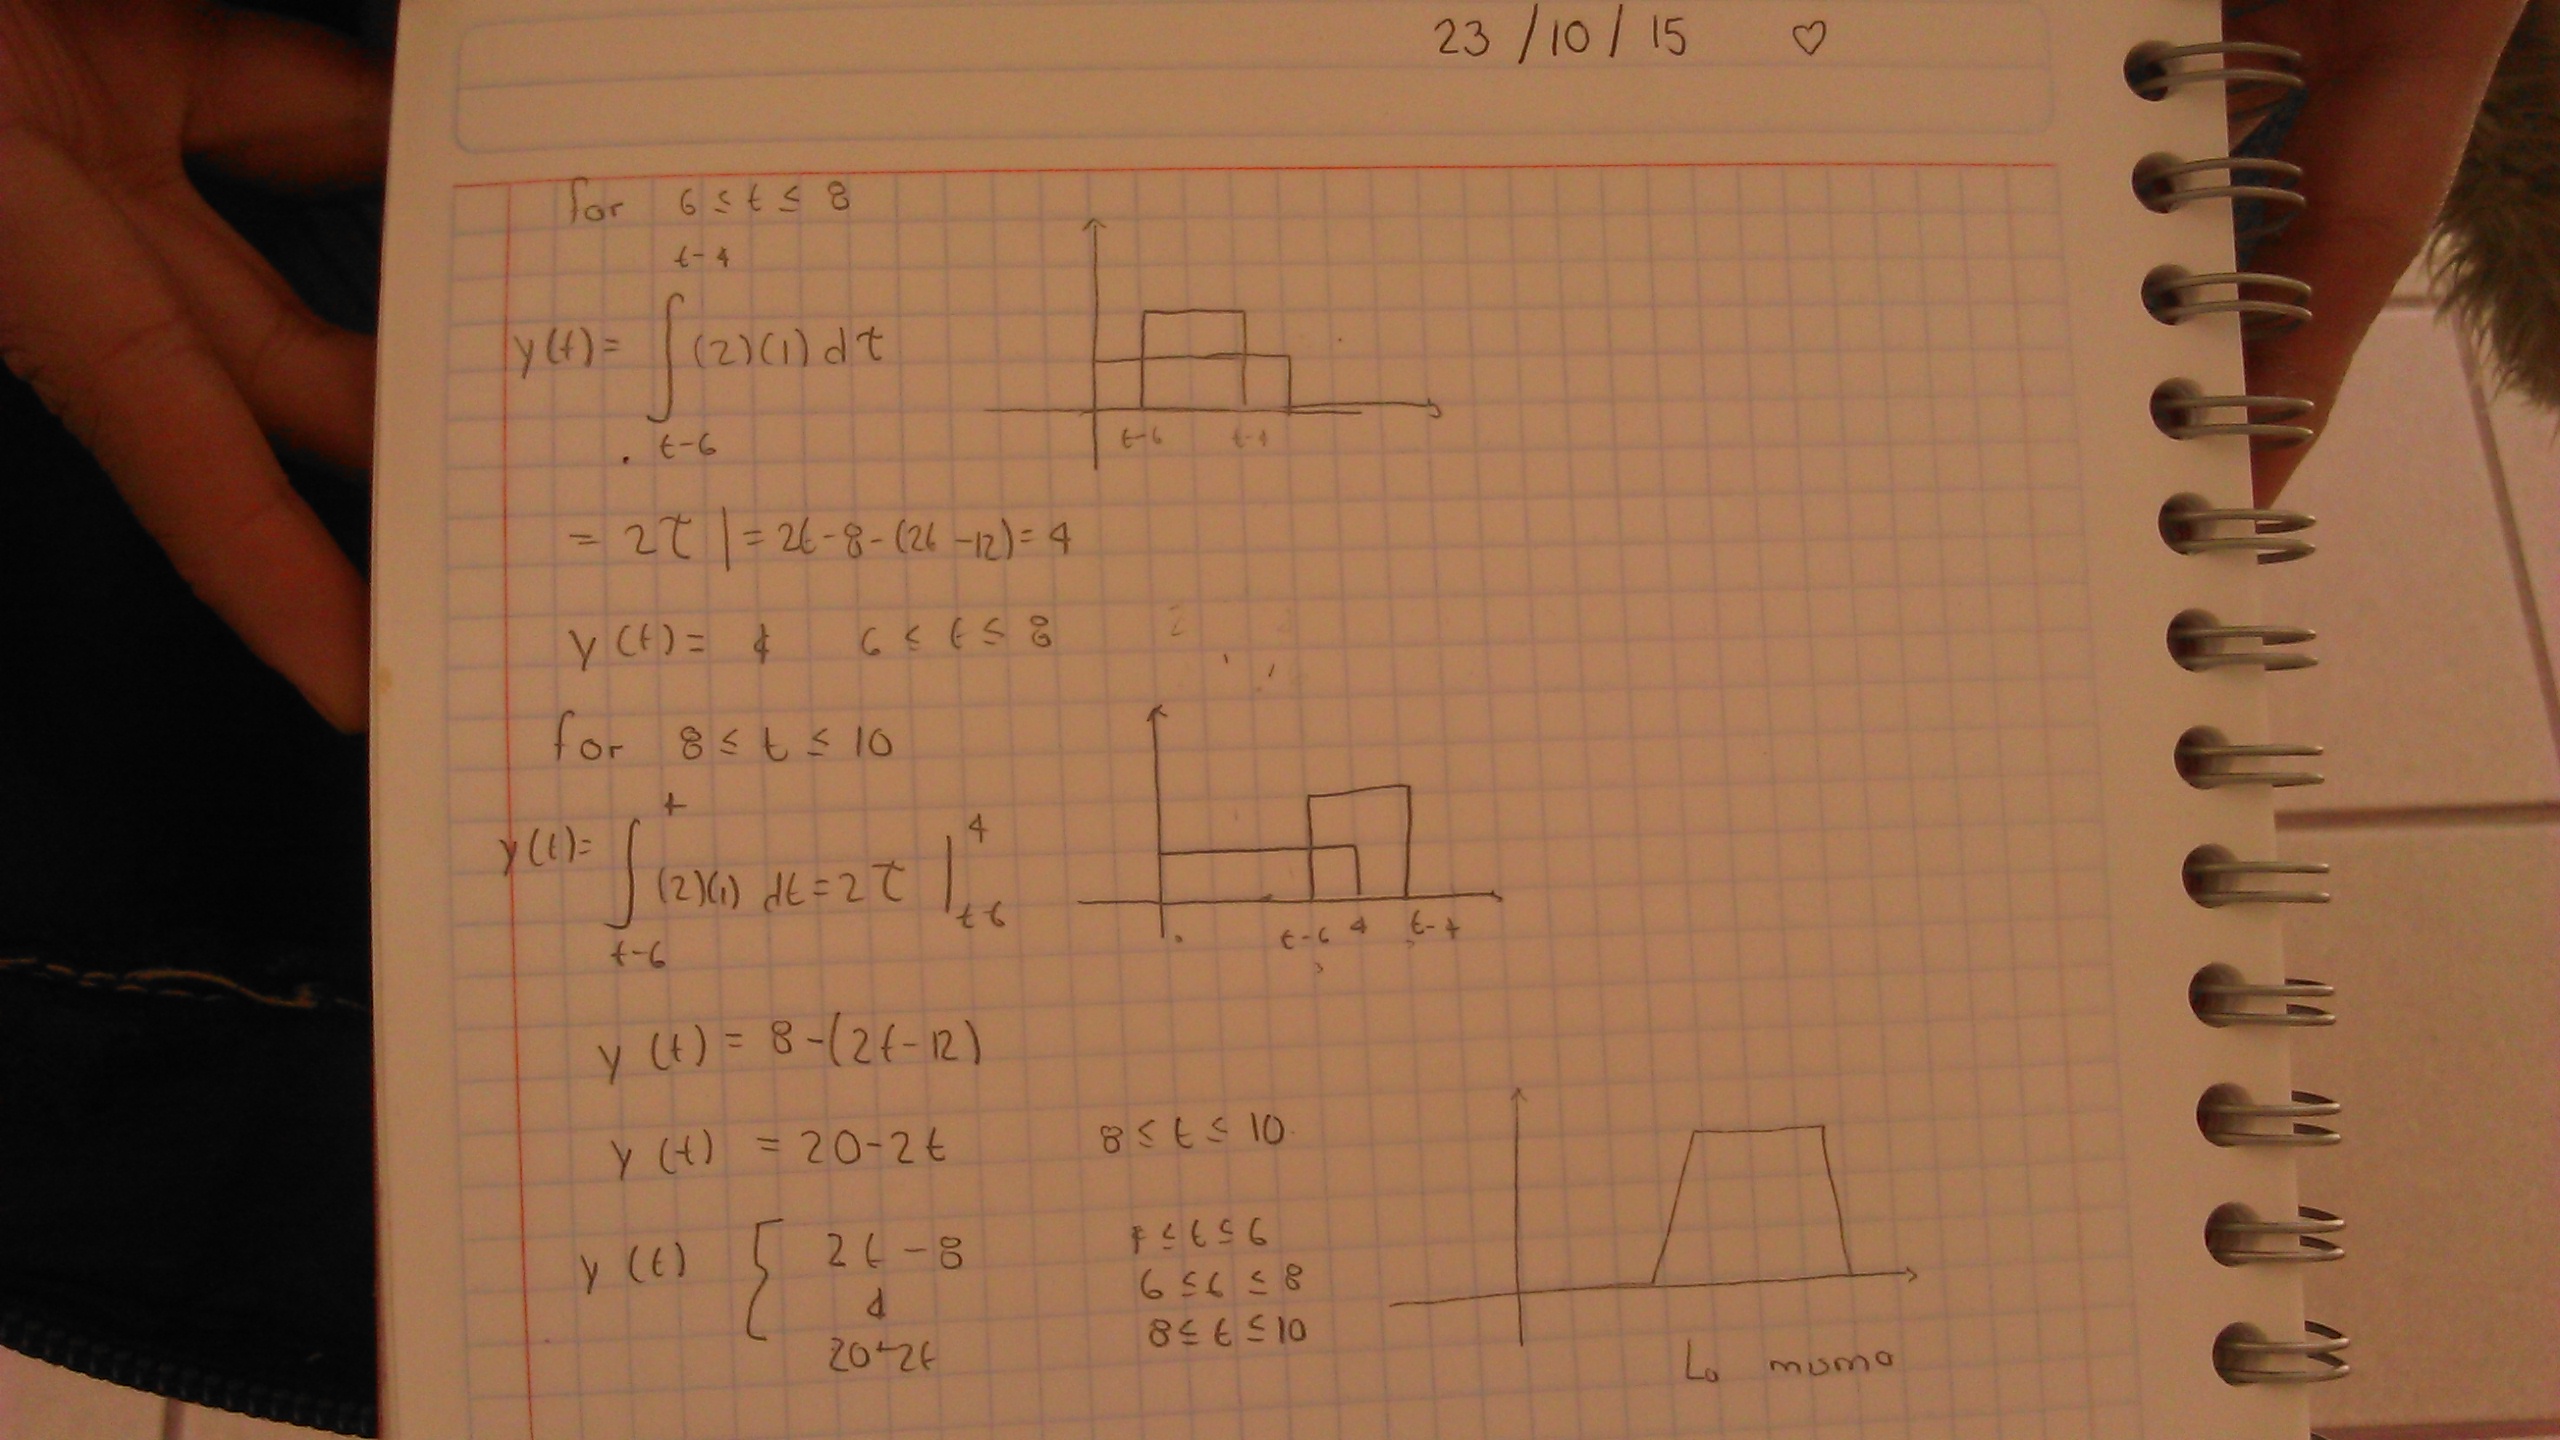 23/10/15 ♡
for 6 ≤ t ≤ 8
y(t)= ∫_{t-6}^{t-4} (2)(1) dτ
t-6 t-4
= 2τ | = 2t-8-(2t-12)=4
y(t)= 4 6 ≤ t ≤ 8
for 8 ≤ t ≤ 10
y(t)= ∫_{t-6}^{4} (2)(1) dτ = 2τ |_{t-6}^{4}
t-6 4 t-4
y(t) = 8-(2t-12)
y(t) = 20-2t 8 ≤ t ≤ 10
y(t) { 2t-8 4 ≤ t ≤ 6
4 6 ≤ t ≤ 8
20+2t 8 ≤ t ≤ 10
Lo mismo